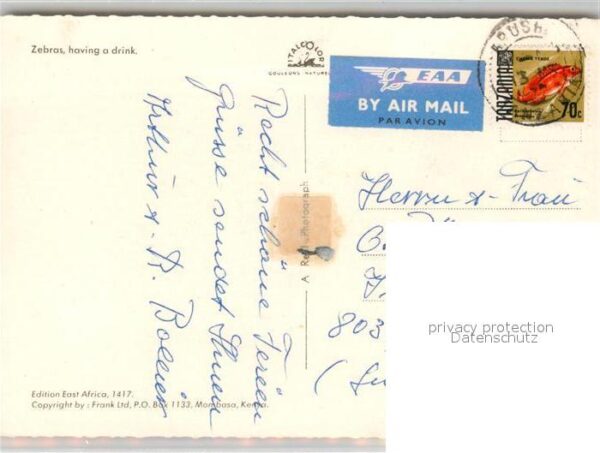 Zebras, having a drink.
ITALCOLOR
COULEURS NATURE
EAA
BY AIR MAIL
PAR AVION
TANZANIA
70c
Recht schöne Ferien
Grüsse sendet Ihnen
Arthur & R.
A Real Photograph
Herrn & Frau
803
privacy protection
Datenschutz
Edition East Africa, 1417.
Copyright by : Frank Ltd, P.O. Box 1133, Mombasa, Kenya.